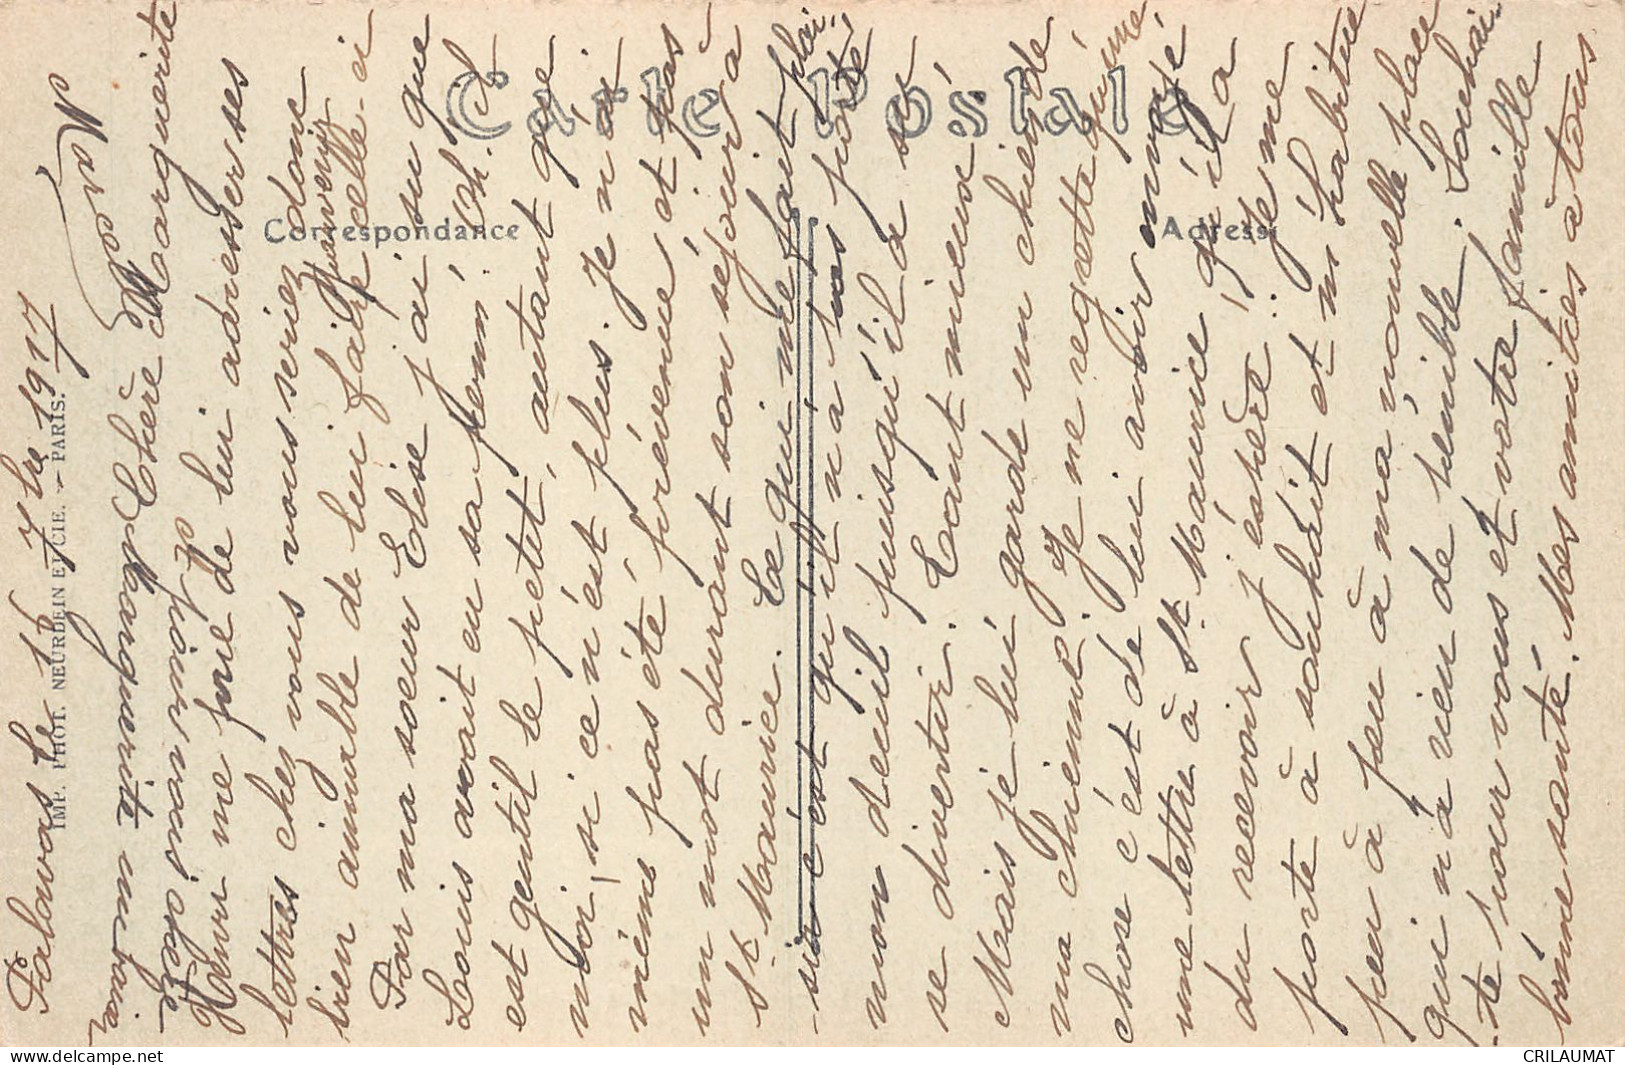 Palavas le 19 7bre 1917
Chère Marguerite
Marguerite m'avai
et pour vous chez
Henri me prie de lui adresser ses
lettres chez vous vous seriez donc
bien aimable de lui faire parvenir celle-ci
Par ma soeur Elise j'ai su que
Louis avait eu sa perm. Oh. Il
est gentil le petit, autant que
moi, si ce n'est plus. Je n'ai
même pas été prévenue et pas
un mot durant son séjour à
St Maurice. Ce qui me fait plai-
-sir c'est qu'il n'a pas porté
mon deuil puisqu'il a su
se divertir. Tant mieux!
Mais je lui garde un chien de
ma chienne! Je ne regrette qu'une
chose c'est de lui avoir envoyé
une lettre à St Maurice qu'il a
du recevoir, j'espère! Je me
porte à souhait et m'habitue
peu à peu à ma nouvelle place
qui n'a rien de pénible. Souhai-
-te pour vous et votre famille
bonne santé. Mes amitiés à tous
Marcelle
Carte Postale
Correspondance
Adresse
IMP. PHOT. NEURDEIN ET CIE. - PARIS.
CRILAUMAT